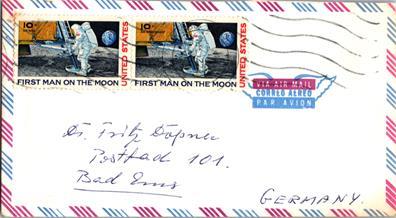 10¢ 10¢
UNITED STATES UNITED STATES
FIRST MAN ON THE MOON FIRST MAN ON THE MOON
VIA AIR MAIL
CORREO AEREO
PAR AVION
Dr. Fritz Döpner
Postfach 101.
Bad Ems
GERMANY.